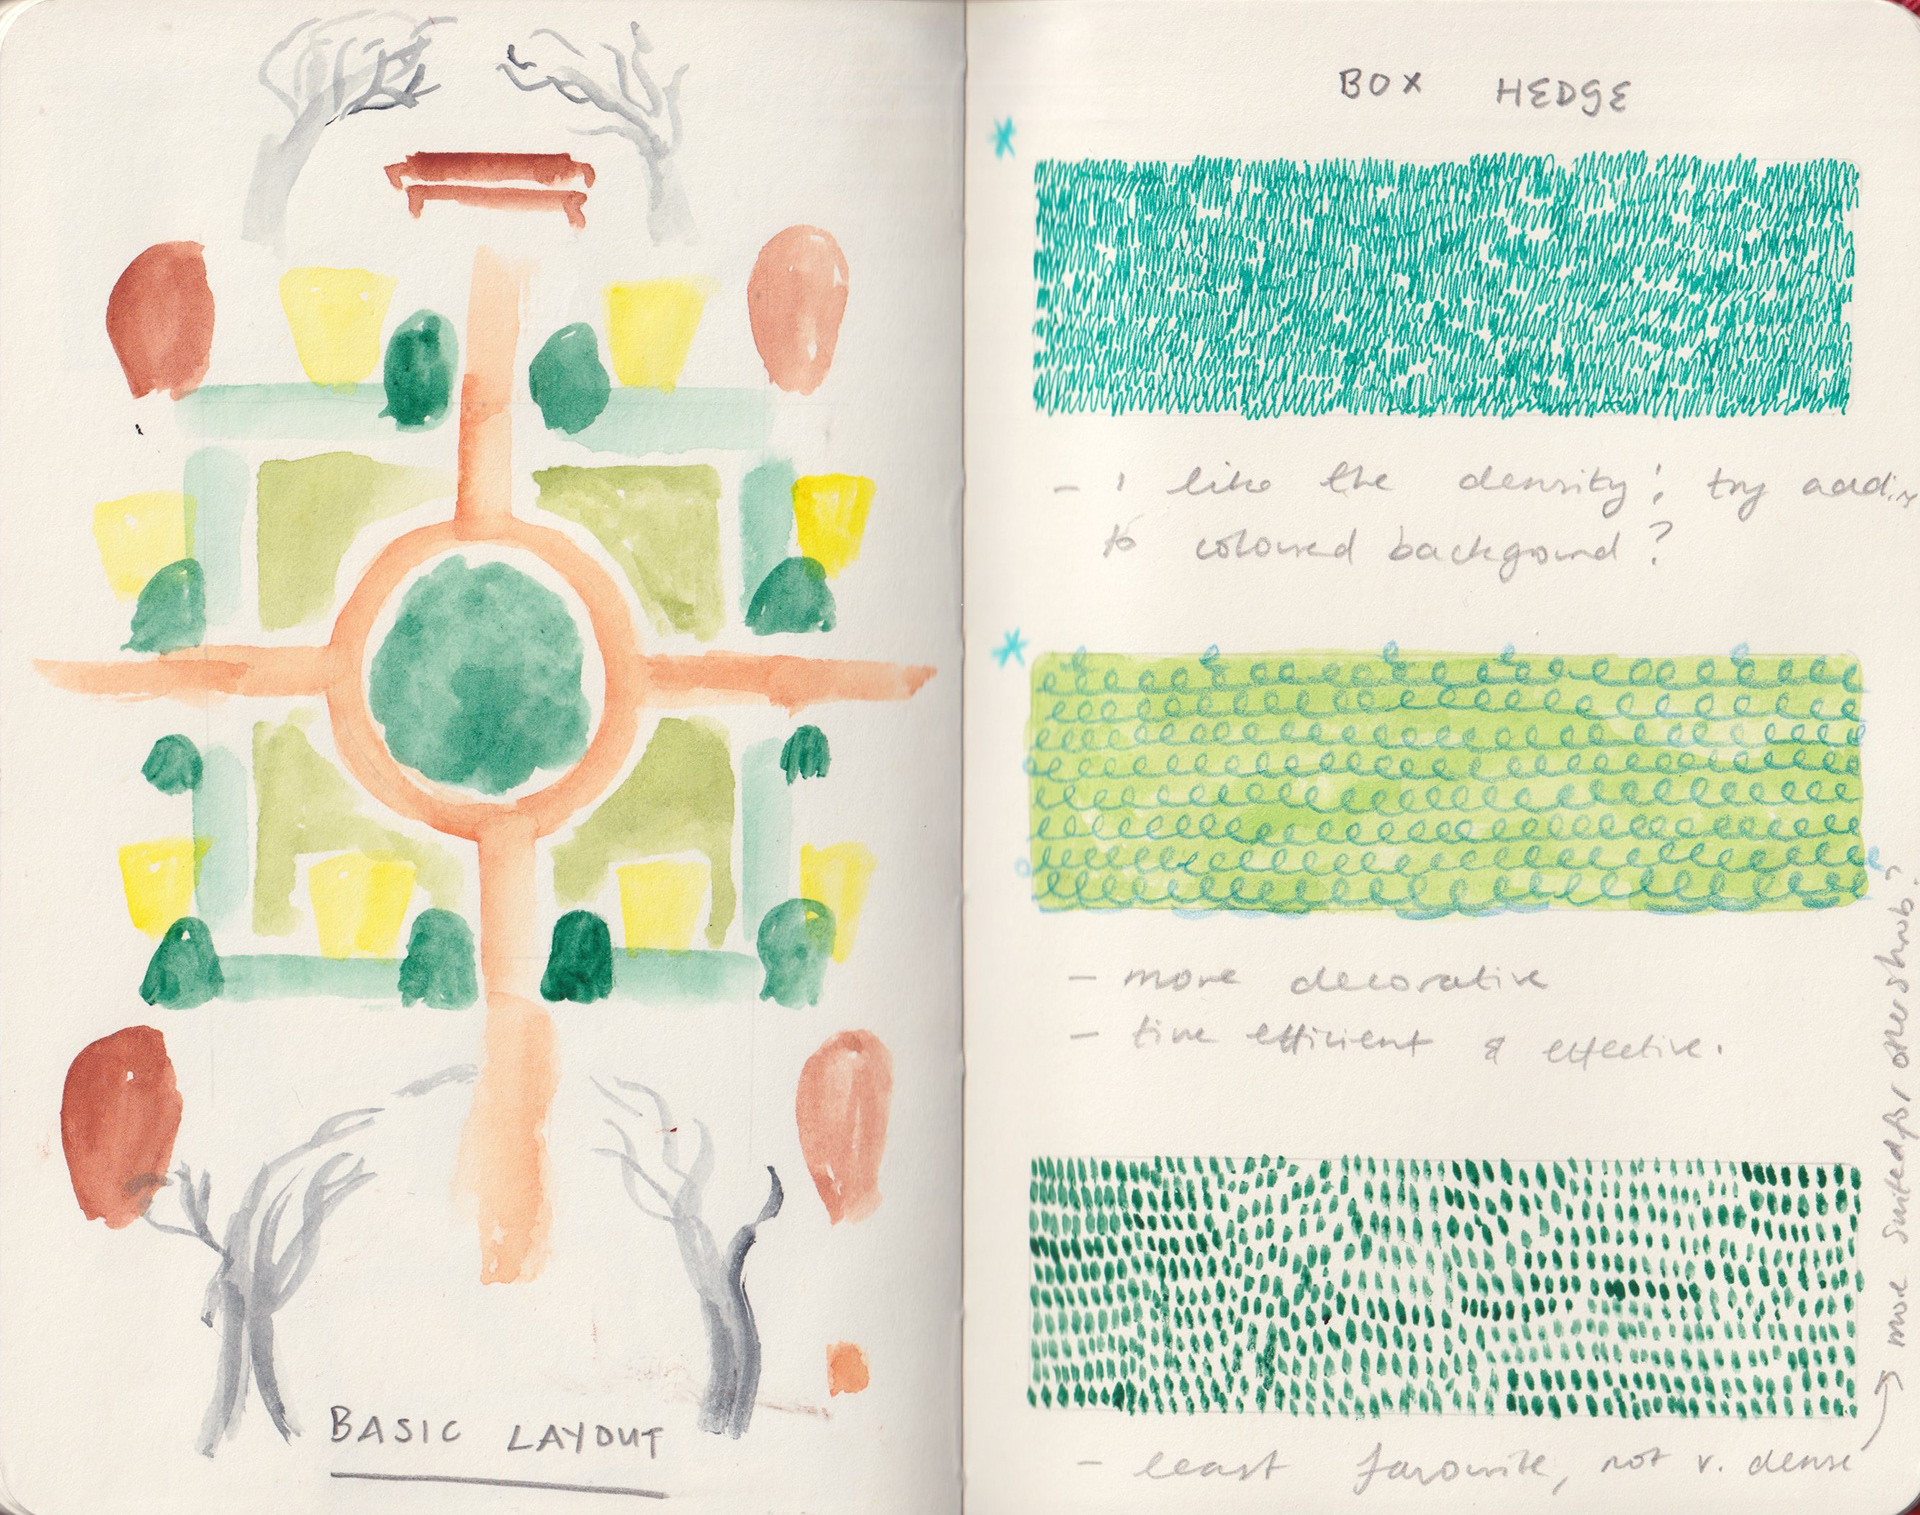 BASIC LAYOUT
BOX HEDGE
- I like the density! try adding
to coloured background?
- more decorative
- time efficient & effective.
- least favourite, not v. dense
more suited for other shrub?